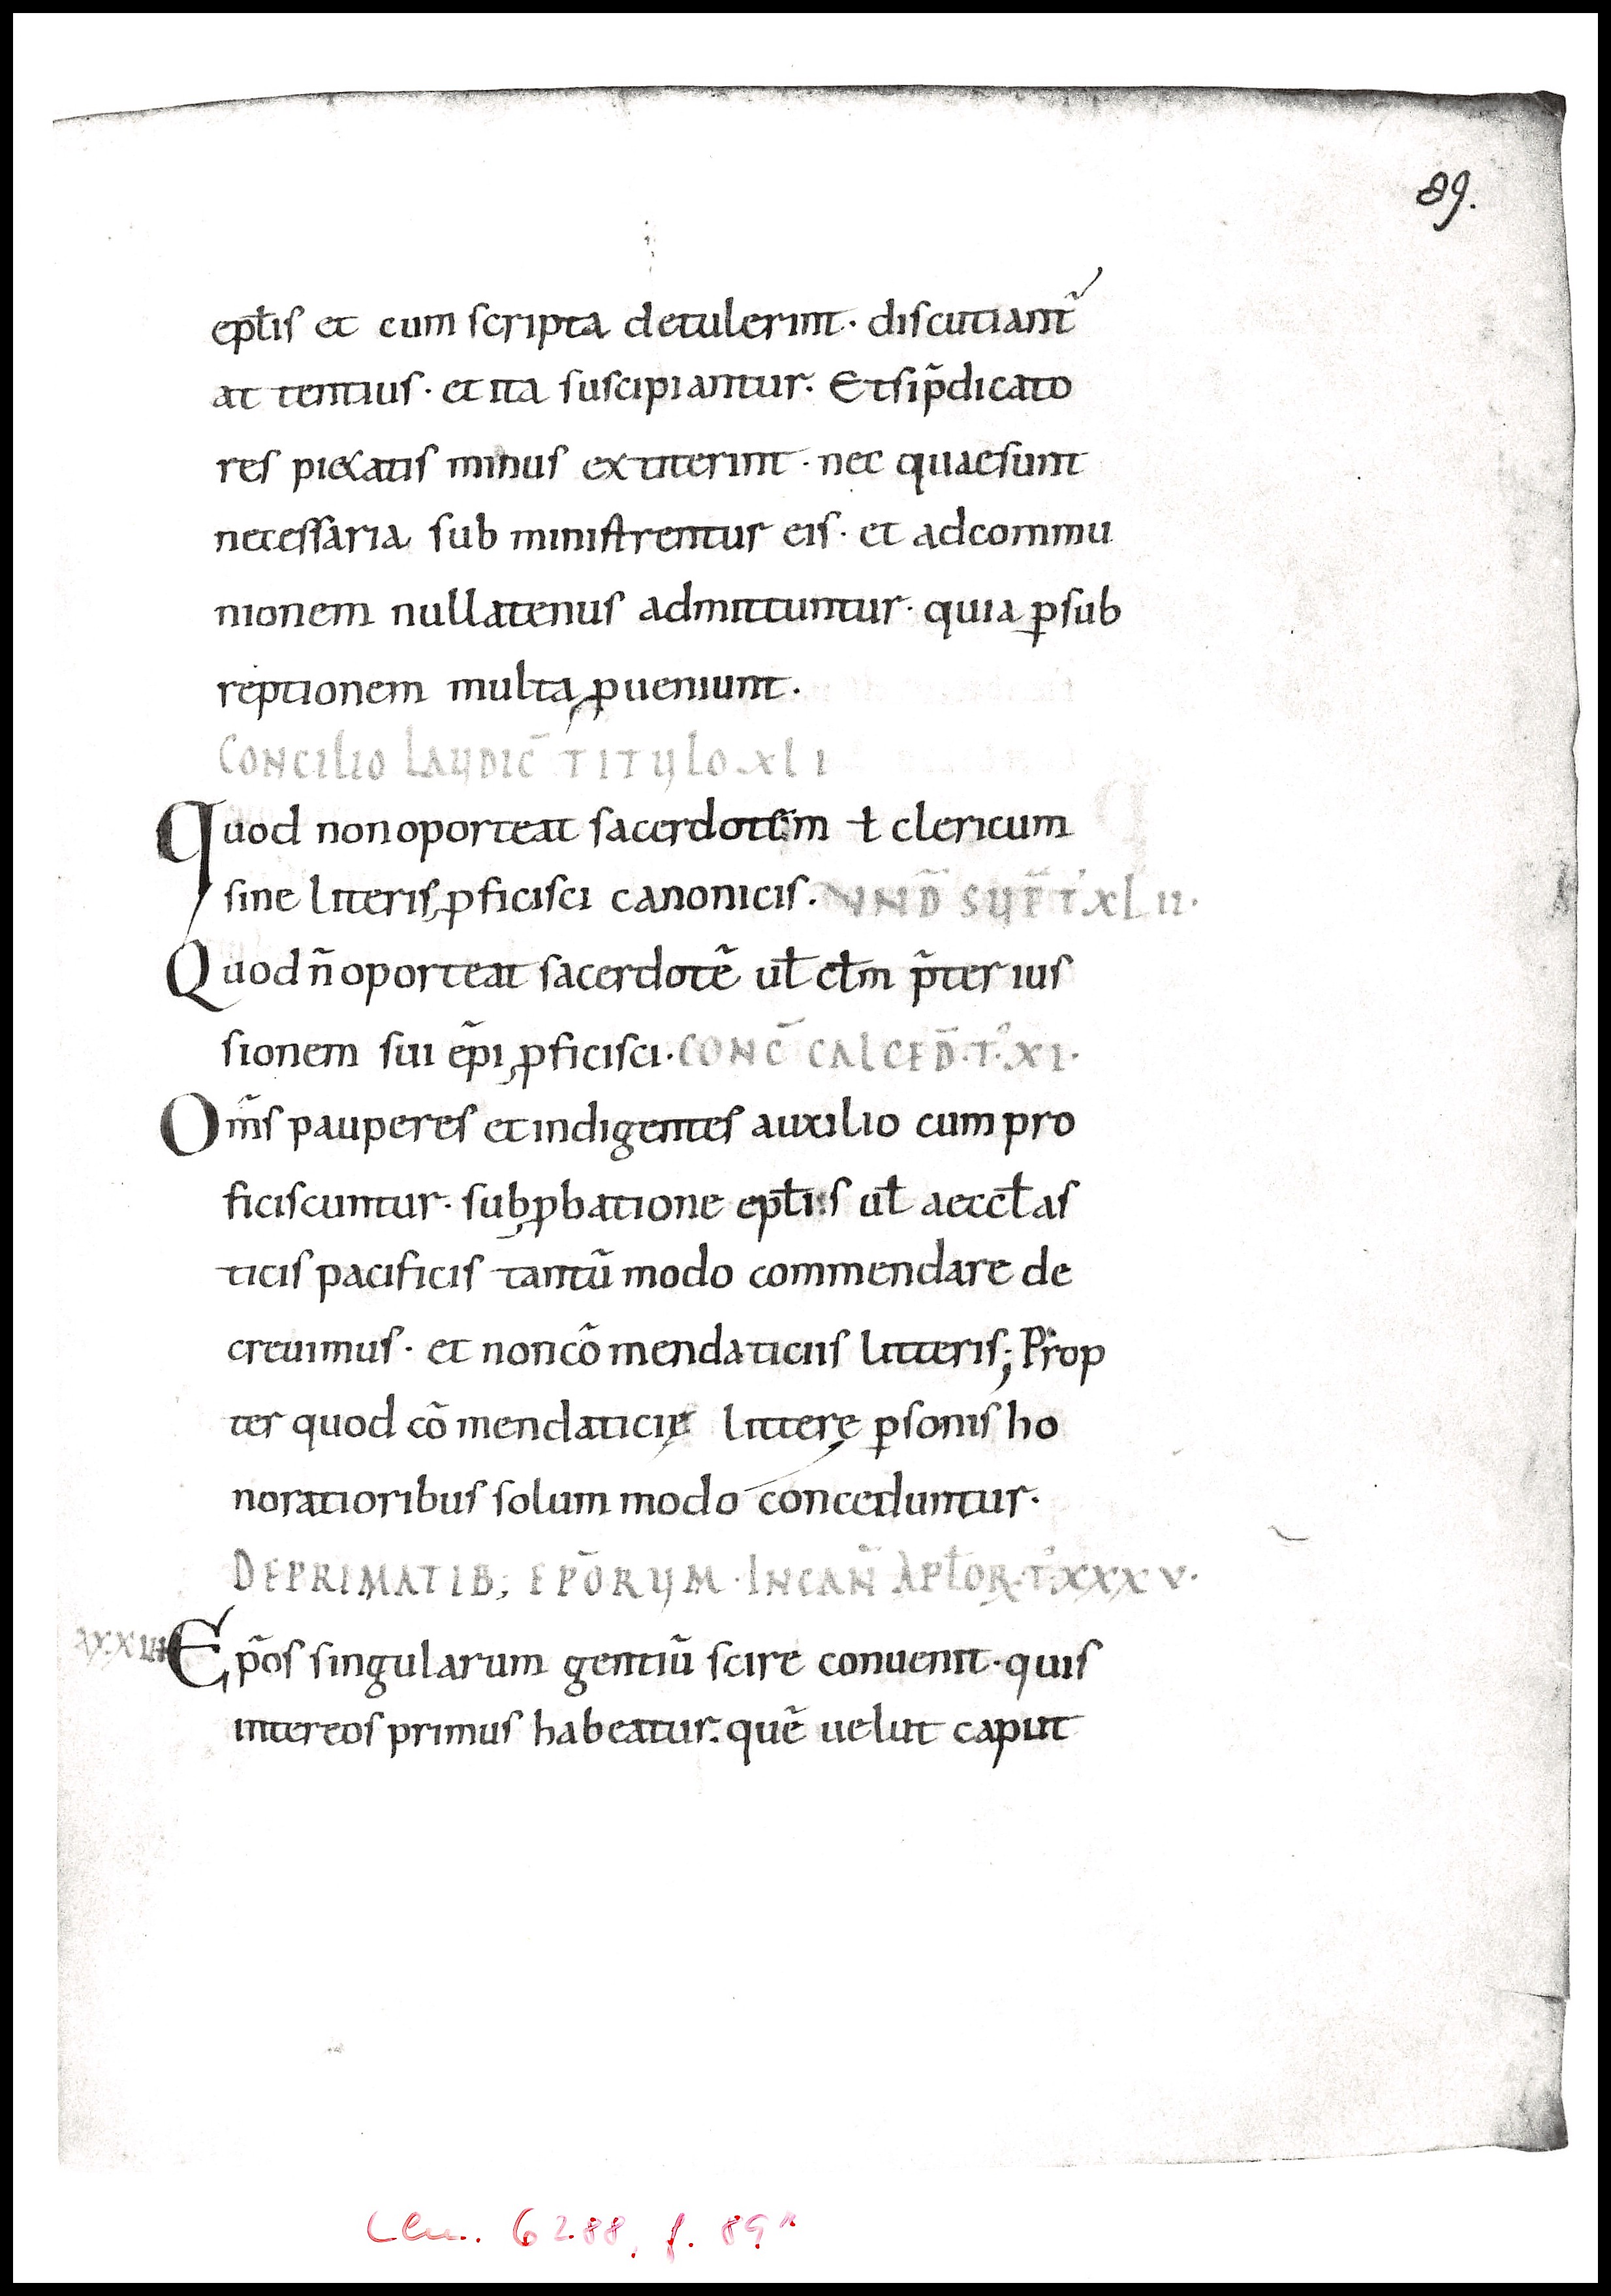 89.
epł̄is et cum scripta detulerint· discutiant̃
at tentius· et ita suscipiantur· Et si p̃dicato
res pietatis minus extiterint· nec quae sunt
necessaria sub ministrentur eis· et ad commu
nionem nullatenus admittuntur· quia ꝑ sub
reptionem multa ꝓueniunt·
CONCILIO LAUDIC̄ TITULO XLI
Quod non oporteat sacerdotem ł clericum
sine literis ꝓficisci canonicis· UNDD̄ SUP̄ T̊ XLII·
Quod ñ oporteat sacerdotẽ uł cłm p̃ter ius
sionem sui ep̃i ꝓficisci· CONC̄ CALCED̄·T̊·XI·
Om̃s pauperes et indigentes auxilio cum pro
ficiscuntur· sub ꝓbatione epłis uł aeccłas
ticis pacificis tantũ modo commendare de
creuimus· et non cõmendaticiis litteris; Prop
ter quod cõmendaticię litterę ꝑsonis ho
noratioribus solum modo conceduntur·
DE PRIMATIB; EPŌRUM· IN CAÑ APŁOR·T̊·XXXV·
XXXVII Ep̃os singularum gentiũ scire conuenit· quis
inter eos primus habeatur· quẽ uelut caput
Clm. 6288, f. 89r